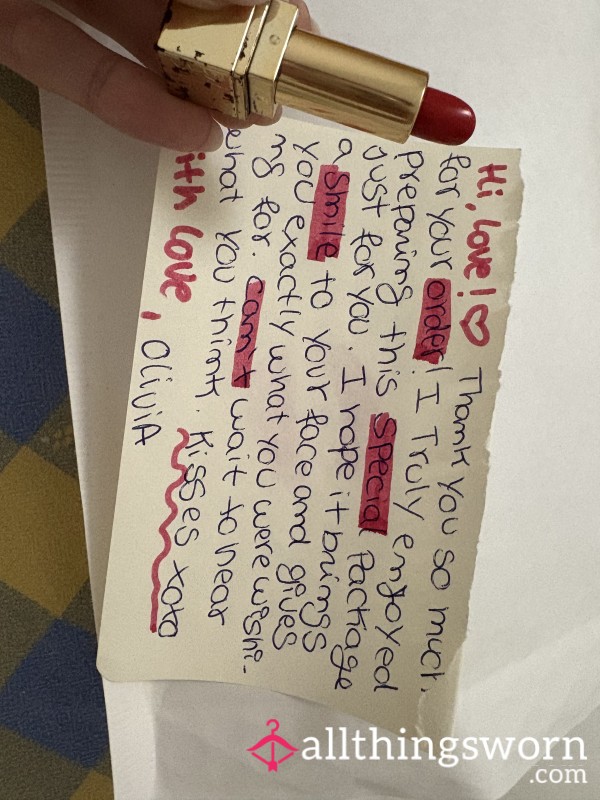 Hi, Love! ♡ Thank you so much.
for your order! I Truly enjoyed
preparing this special package
Just for you. I hope it brings
a smile to your face and gives
you exactly what you were wishi-
ng for. can't wait to hear
what you think. Kisses xoxo
ith love, OliviA
allthingsworn
.com